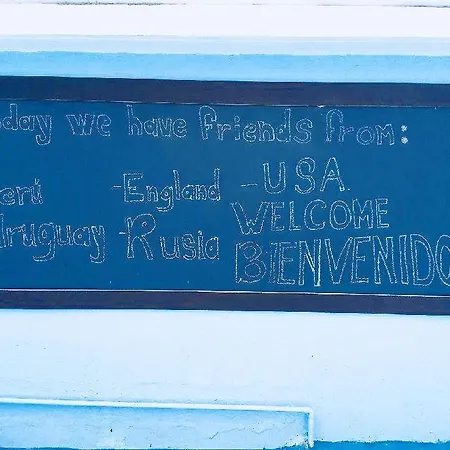 oday we have friends from:
erú -England -USA.
Uruguay -Rusia WELCOME
BIENVENIDO